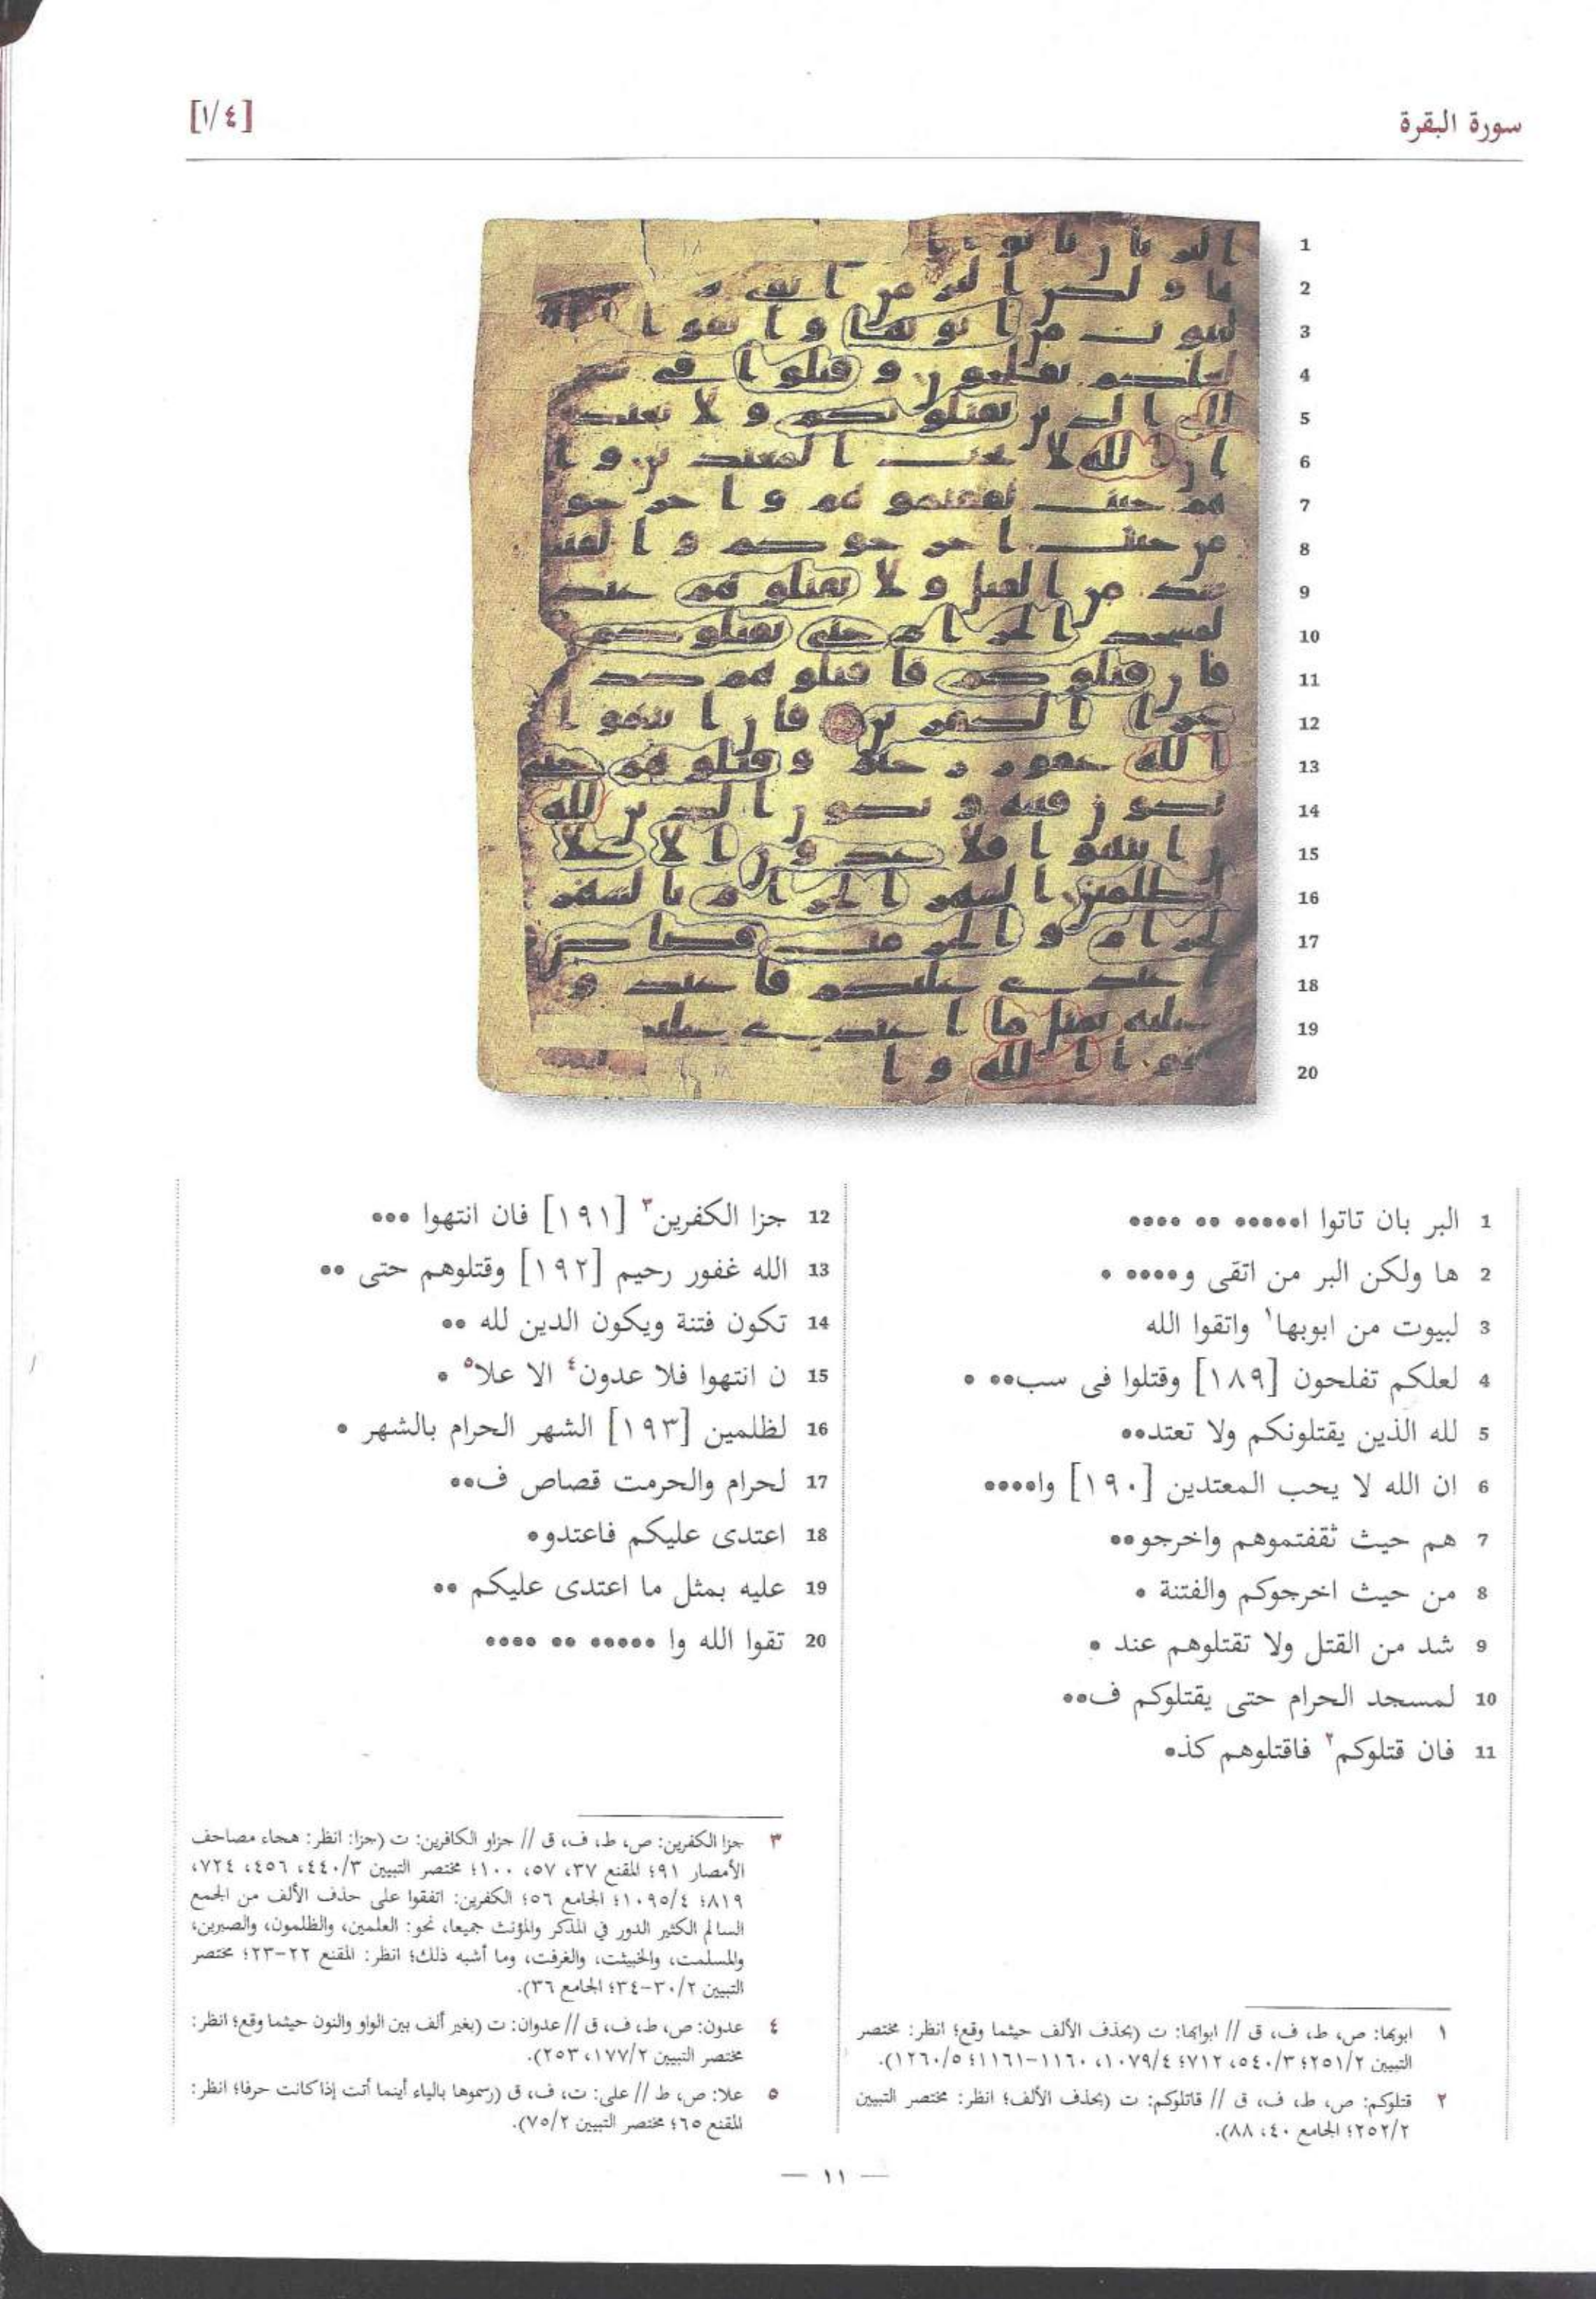 سورة البقرة
[١/٤]
1 البر بان تاتوا ا●●●●● ●● ●●●●
2 ها ولكن البر من اتقى و●●●●● ●
3 لبيوت من ابوبها١ واتقوا الله
4 لعلكم تفلحون [١٨٩] وقتلوا فى سب●● ●
5 لله الذين يقتلونكم ولا تعتد●●
6 ان الله لا يحب المعتدين [١٩٠] وا●●●●
7 هم حيث ثقفتموهم واخرجو●●
8 من حيث اخرجوكم والفتنة ●
9 شد من القتل ولا تقتلوهم عند ●
10 لمسجد الحرام حتى يقتلوكم ف●●
11 فان قتلوكم٢ فاقتلوهم كذ●
12 جزا الكفرين٣ [١٩١] فان انتهوا ●●●
13 الله غفور رحيم [١٩٢] وقتلوهم حتى ●●
14 تكون فتنة ويكون الدين لله ●●
15 ن انتهوا فلا عدون٤ الا علا٥ ●
16 لظلمين [١٩٣] الشهر الحرام بالشهر ●
17 لحرام والحرمت قصاص ف●●
18 اعتدى عليكم فاعتدو●
19 عليه بمثل ما اعتدى عليكم ●●
20 تقوا الله وا ●●●●● ●● ●●●●
١ ابوبها: ص، ط، ف، ق // ابوابها: ت (بحذف الألف حيثما وقع؛ انظر: مختصر
التبيين ٢٥١/٢؛ ٥٤٠/٣، ٧١٢؛ ١٠٧٩/٤، ١١٦٠-١١٦١؛ ١٢٦٠/٥).
٢ قتلوكم: ص، ط، ف، ق // قاتلوكم: ت (بحذف الألف؛ انظر: مختصر التبيين
٢٥٢/٢؛ الجامع ٤٠، ٨٨).
٣ جزا الكفرين: ص، ط، ف، ق // جزاو الكافرين: ت (جزا: انظر: هجاء مصاحف
الأمصار ٩١؛ المقنع ٣٧، ٥٧، ١٠٠؛ مختصر التبيين ٤٤٠/٣، ٤٥٦، ٧٢٤،
٨١٩؛ ١٠٩٥/٤؛ الجامع ٥٦؛ الكفرين: اتفقوا على حذف الألف من الجمع
السالم الكثير الدور في المذكر والمؤنث جميعا، نحو: العلمين، والظلمون، والصبرين،
والمسلمت، والخبيثت، والغرفت، وما أشبه ذلك؛ انظر: المقنع ٢٢-٢٣؛ مختصر
التبيين ٣٠/٢-٣٤؛ الجامع ٣٦).
٤ عدون: ص، ط، ف، ق // عدوان: ت (بغير ألف بين الواو والنون حيثما وقع؛ انظر:
مختصر التبيين ١٧٧/٢، ٢٥٣).
٥ علا: ص، ط // على: ت، ف، ق (رسموها بالياء أينما أتت إذا كانت حرفا؛ انظر:
المقنع ٦٥؛ مختصر التبيين ٧٥/٢).
— ١١ —